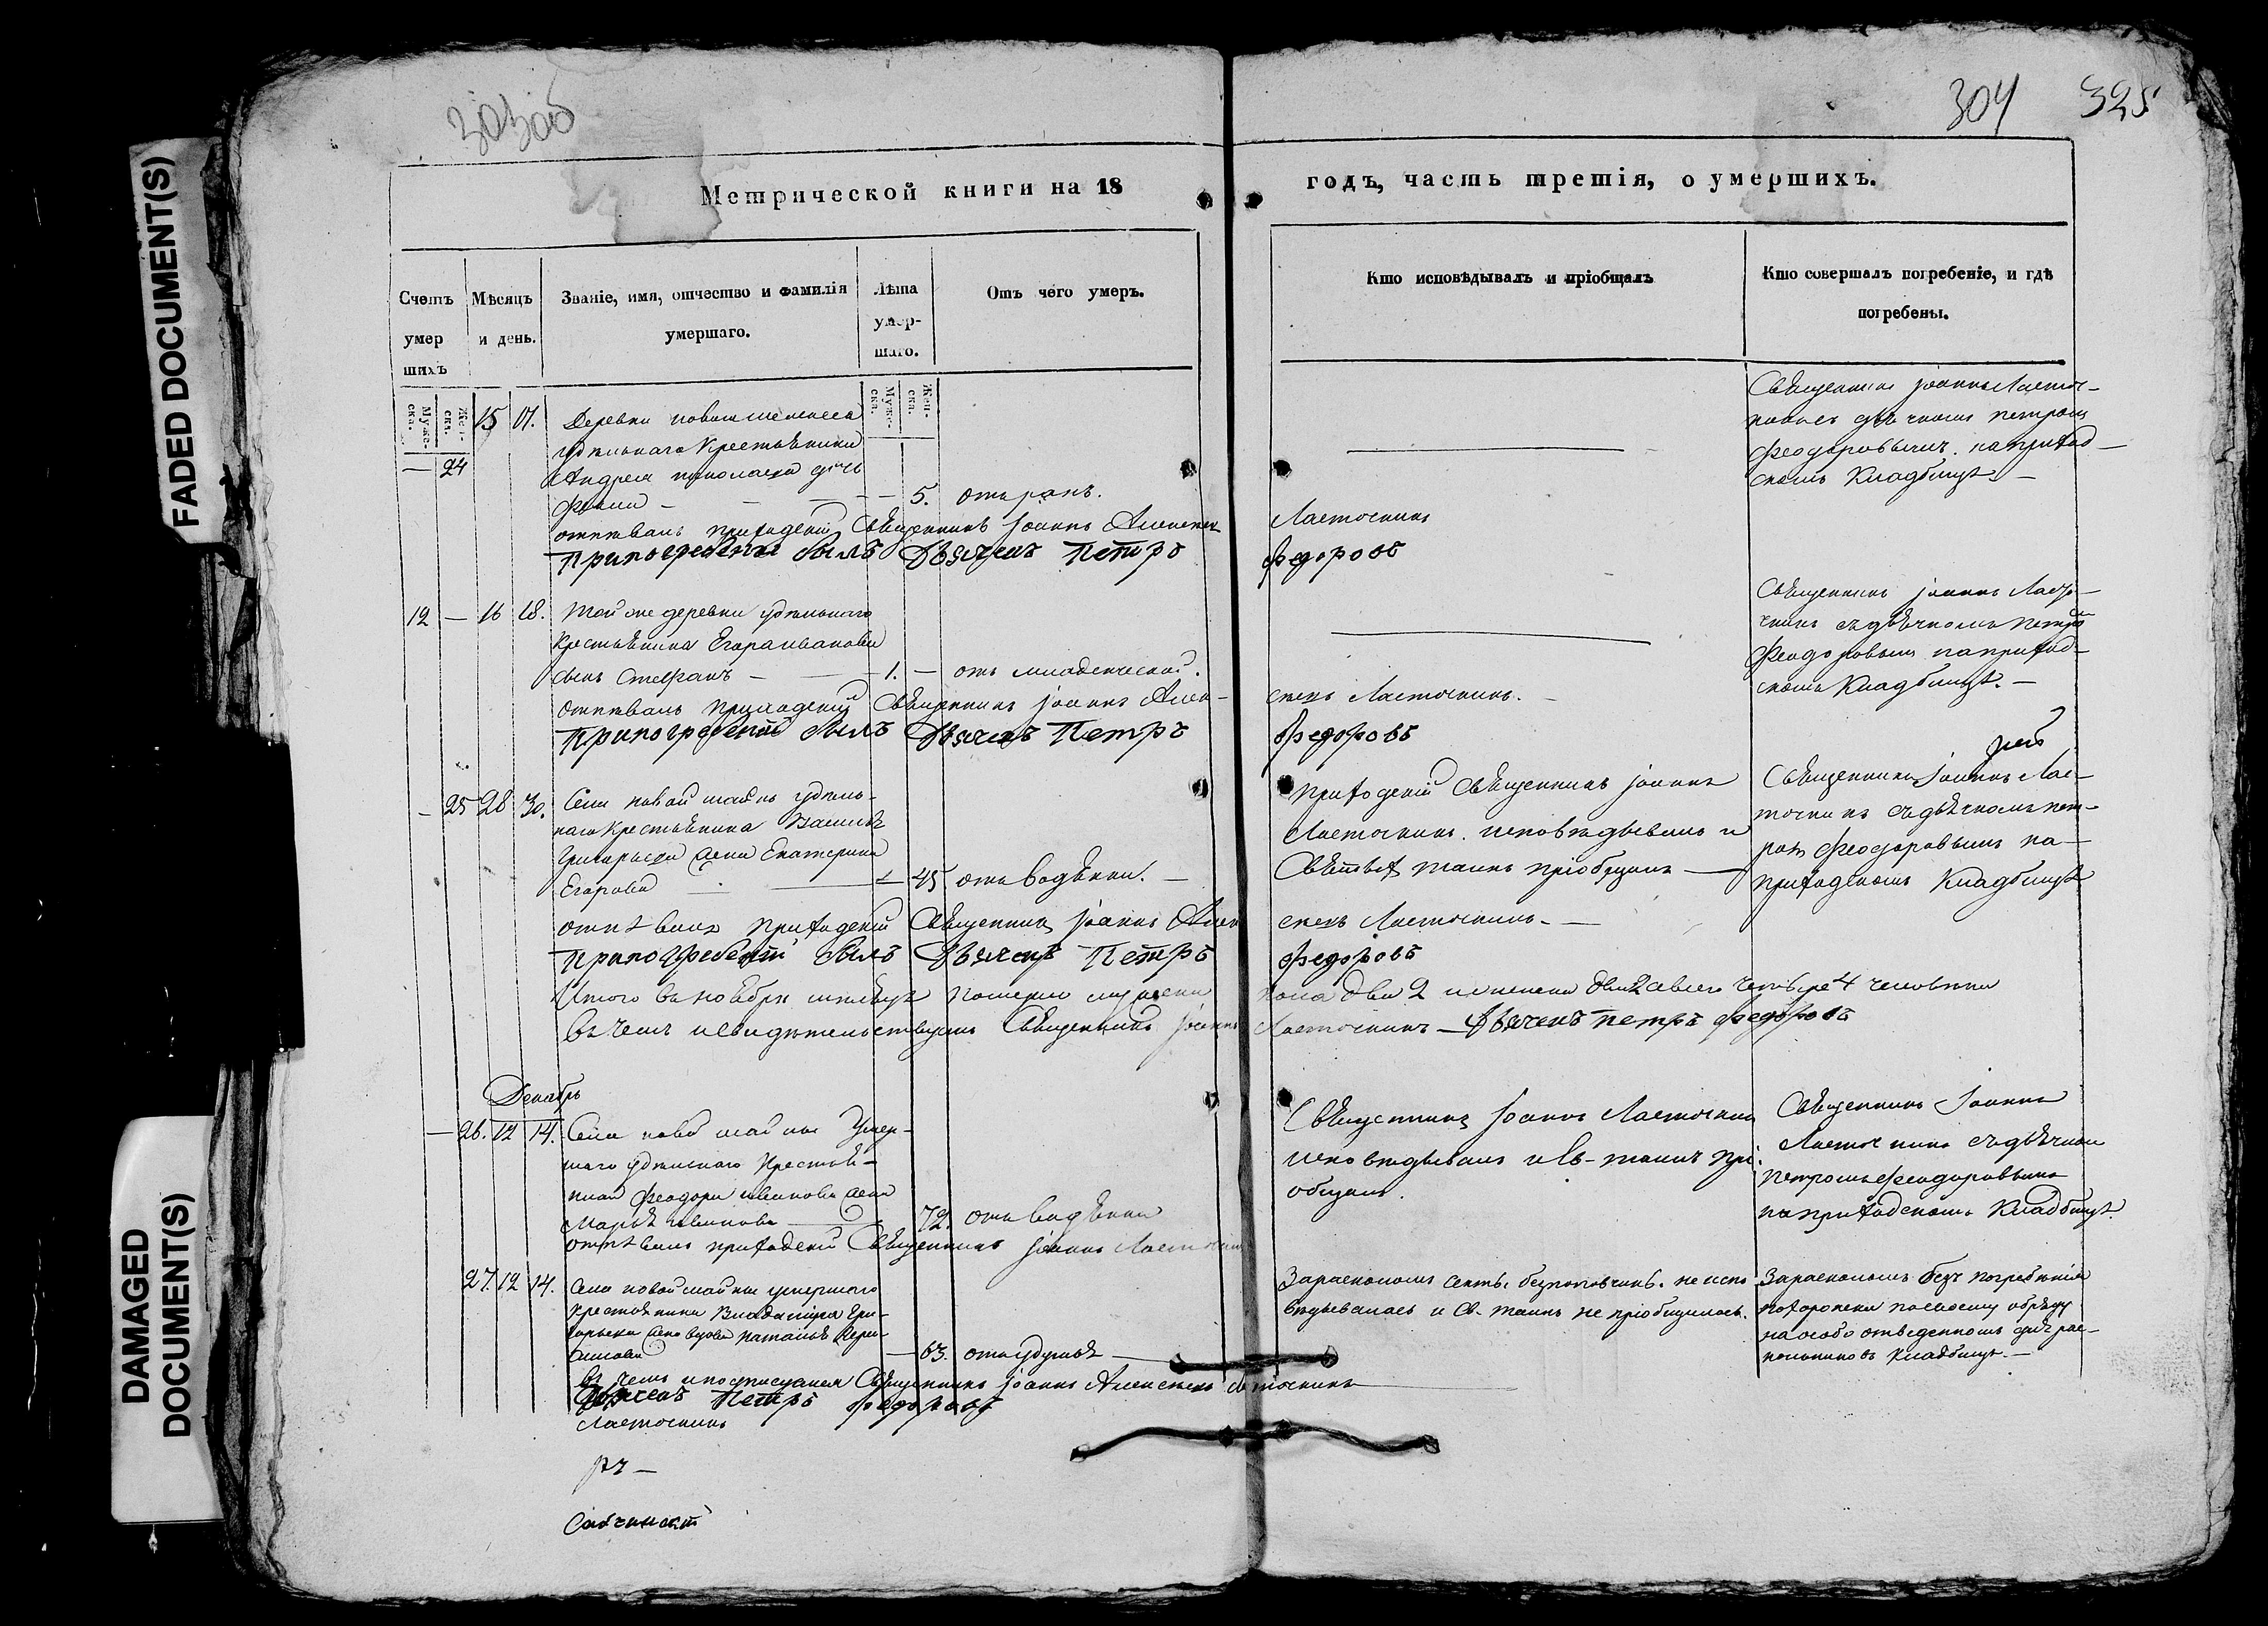 FADED DOCUMENT(S)
DAMAGED
DOCUMENT(S)
304 325
Метрической книги на 18
годъ, часть третія, о умершихъ.
Счетъ
умер
шихъ
Мѣсяцъ
и день.
Званіе, имя, отчество и фамилія
умершаго.
Лѣта
умер-
шаго.
Отъ чего умеръ.
Кто исповѣдывалъ и пріобщалъ
Кто совершалъ погребеніе, и гдѣ
погребены.
Муже-
ска.
Жен-
ска.
Муже-
ска.
Жен-
ска.
— 24 15 17. Деревни
удѣльнаго крестьянина
Андрея Николаева дочь
— 5. отъ ранъ.
Священникъ Іоаннъ Ласточ-
кинъ съ дьячкомъ Петромъ
Феодоровымъ на приход-
скомъ кладбищѣ —
отпѣвалъ приходскій Священникъ Іоаннъ Алексѣевъ Ласточкинъ
При погребеніи былъ Дьячекъ Петръ Федоровъ
12 — 16 18. Той же деревни удѣльнаго
крестьянина Егора Иванова
сынъ Стефанъ — 1. — отъ младенческой.
Священникъ Іоаннъ Ласто-
чкинъ съ дьячкомъ Петромъ
Феодоровымъ на приход-
скомъ кладбищѣ. —
отпѣвалъ приходскій Священникъ Іоаннъ Алек-
сѣевъ Ласточкинъ. —
При погребеніи былъ Дьячекъ Петръ Федоровъ
— 25 28 30. Села Новой Майны удѣль-
наго крестьянина Василья
Григорьева жена Екатерина
Егорова — 45 отъ водянки. —
Приходскій Священникъ Іоаннъ
Ласточкинъ исповѣдывалъ и
Святыхъ таинъ пріобщалъ —
Священникъ Іоаннъ Лас-
точкинъ съ дьячкомъ Пет-
ромъ Феодоровымъ на
приходскомъ кладбищѣ
отпѣвалъ приходскій Священникъ Іоаннъ Алек
сѣевъ Ласточкинъ. —
При погребеніи былъ Дьячекъ Петръ Федоровъ
Итого въ ноябрѣ мѣсяцѣ померло мужеска пола два 2 и женска два 2 а всего четыре 4 человѣка
въ чемъ и свидѣтельствуемъ Священникъ Іоаннъ Ласточкинъ — Дьячекъ Петръ Федоровъ
Декабрь
— 26. 12 14. Села Новой Майны умер-
шаго удѣльнаго крестья-
нина Феодора Иванова жена
Марья Иванова — 72. отъ водянки
Священникъ Іоаннъ Ласточкинъ
исповѣдывалъ и Св. таинъ прі-
общалъ.
Священникъ Іоаннъ
Ласточкинъ съ дьячкомъ
Петромъ Феодоровымъ
на приходскомъ кладбищѣ.
отпѣвалъ приходскій Священникъ Іоаннъ Ласточкинъ
27. 12 14. Села Новой Майны умершаго
крестьянина Владимира Гри-
горьева жена вдова Наталья Гера-
симова — 63. отъ удушья —
За расколомъ секты безпоповчины не испо
вѣдывалась и Св. таинъ не пріобщилась.
За расколомъ безъ погребенія
похоронена по своему обряду
на особо отведенномъ для рас-
кольниковъ кладбищѣ. —
въ чемъ и подписуемся Священникъ Іоаннъ Алексѣевъ Ласточкинъ
Дьячекъ Петръ Федоровъ
Ласточкинъ